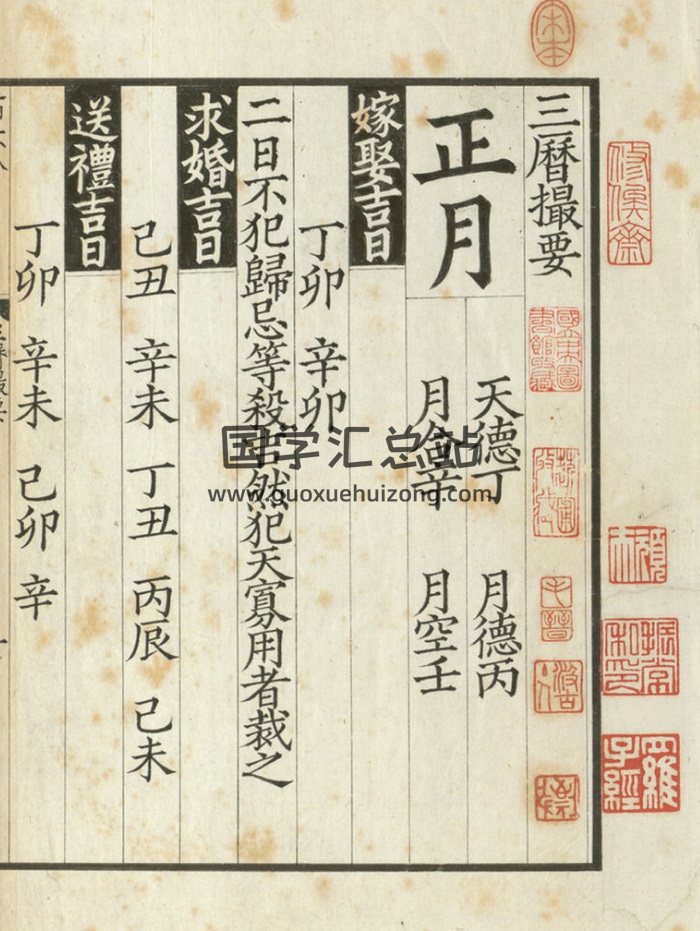 三曆撮要
正月
天德丁 月德丙
月合辛 月空壬
嫁娶吉日
丁卯 辛卯
二日不犯歸忌等殺
然犯天寡用者裁之
求婚吉日
己丑 辛未 丁丑 丙辰 己未
送禮吉日
丁卯 辛未 己卯 辛
国学汇总站
www.guoxuehuizong.com
宋本
羅子經